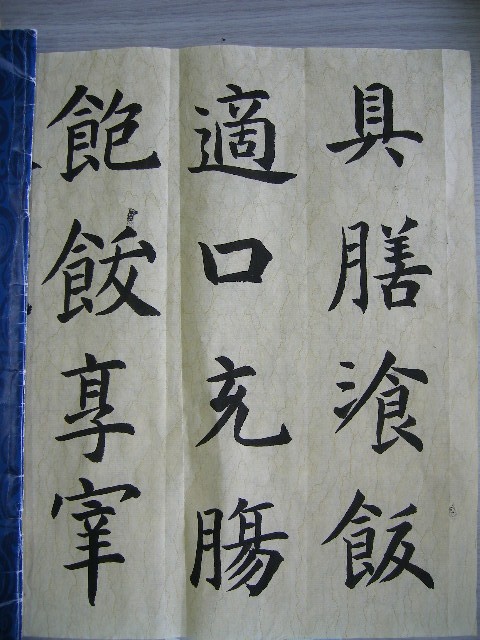 具膳飡飯
適口充腸
飽飫享宰